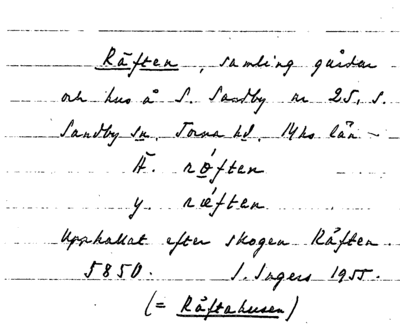 Räften, samling gårdar
och hus å S. Sandby nr 25, S.
Sandby sn. Torna hd. Mhs län –
Ä. rǿften
y. rǽften
Uppkallat efter skogen Räften.
5850. I. Ingers 1955.
(= Räftahusen)